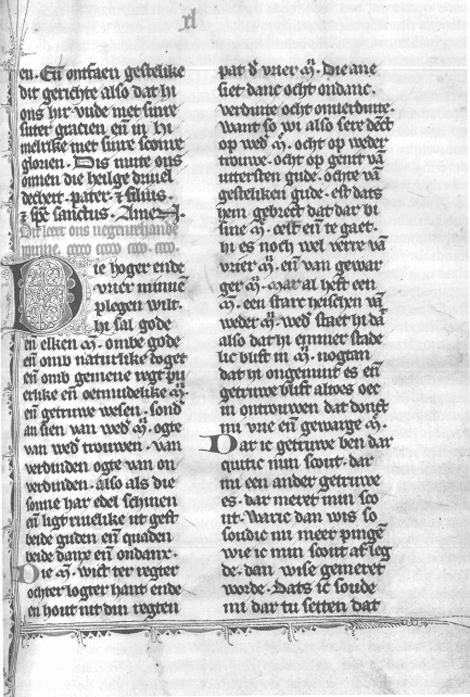 xl
en. Eñ ontfaen gestelike
dit gerichte also dat hi
ons hir vude met sinre
suter gracien eñ in hi
melrike met sinre sconre
glorien. Dis mute ons
onnen die heilge
pater. & filius.
& sp̄c sanctus. Amen.
Dit leert ons negenrehande
minne.
Die hoger ende
vrier minnē
plegen wilt.
hi sal gode
eñ elken m̄. ombe gode
eñ omb naturlike doget
eñ omb gemene
erlike eñ oetmudelike m̄.
eñ getruwe wesen. sond'
an sien van wed' m̄. ogte
van wed' trouwen. van
verbinden ogte van on
verbinden. also als die
sonne har edel schinen
eñ ligt riuelike ut geft
beide guden eñ quaden
beide danx eñ ondanx.
Die m̄. wict ter regter
ochter logter hant ende
en hout nit din regten
pat d' vrier m̄. Die ane
siet danc ocht ondanc.
verdinte ocht onuerdinte.
want so wi also sere
op wed' m̄. ocht op weder
trouwe. ocht op genut vā
uttersten gude. ochte vā
gesteliken gude. est dats
hem gebrect dat dar bi
sine m̄. cest eñ te gaet.
hi es noch wel verre vā
vrier m̄. eñ van gewar
ger m̄. mar al heft een
m̄. een start heischen vā
weder m̄. wed' staet hi dā
also dat hi emmer stade
lic blift in m̄. nogtan
dat hi ongemint es eñ
getruwe blift altoes oec
in ontrouwen dat donct
mi vrie eñ gewarge m̄.
Dar ic getruwe ben dar
quitic min scout. dar
mi een ander getruwe
es. dar meret min sco
ut. waric dan wis so
soudic mi meer pingē
wie ic min scout af leg
de. dan wise gemeret
worde. Dats ic soude
mi dar tu setten dat